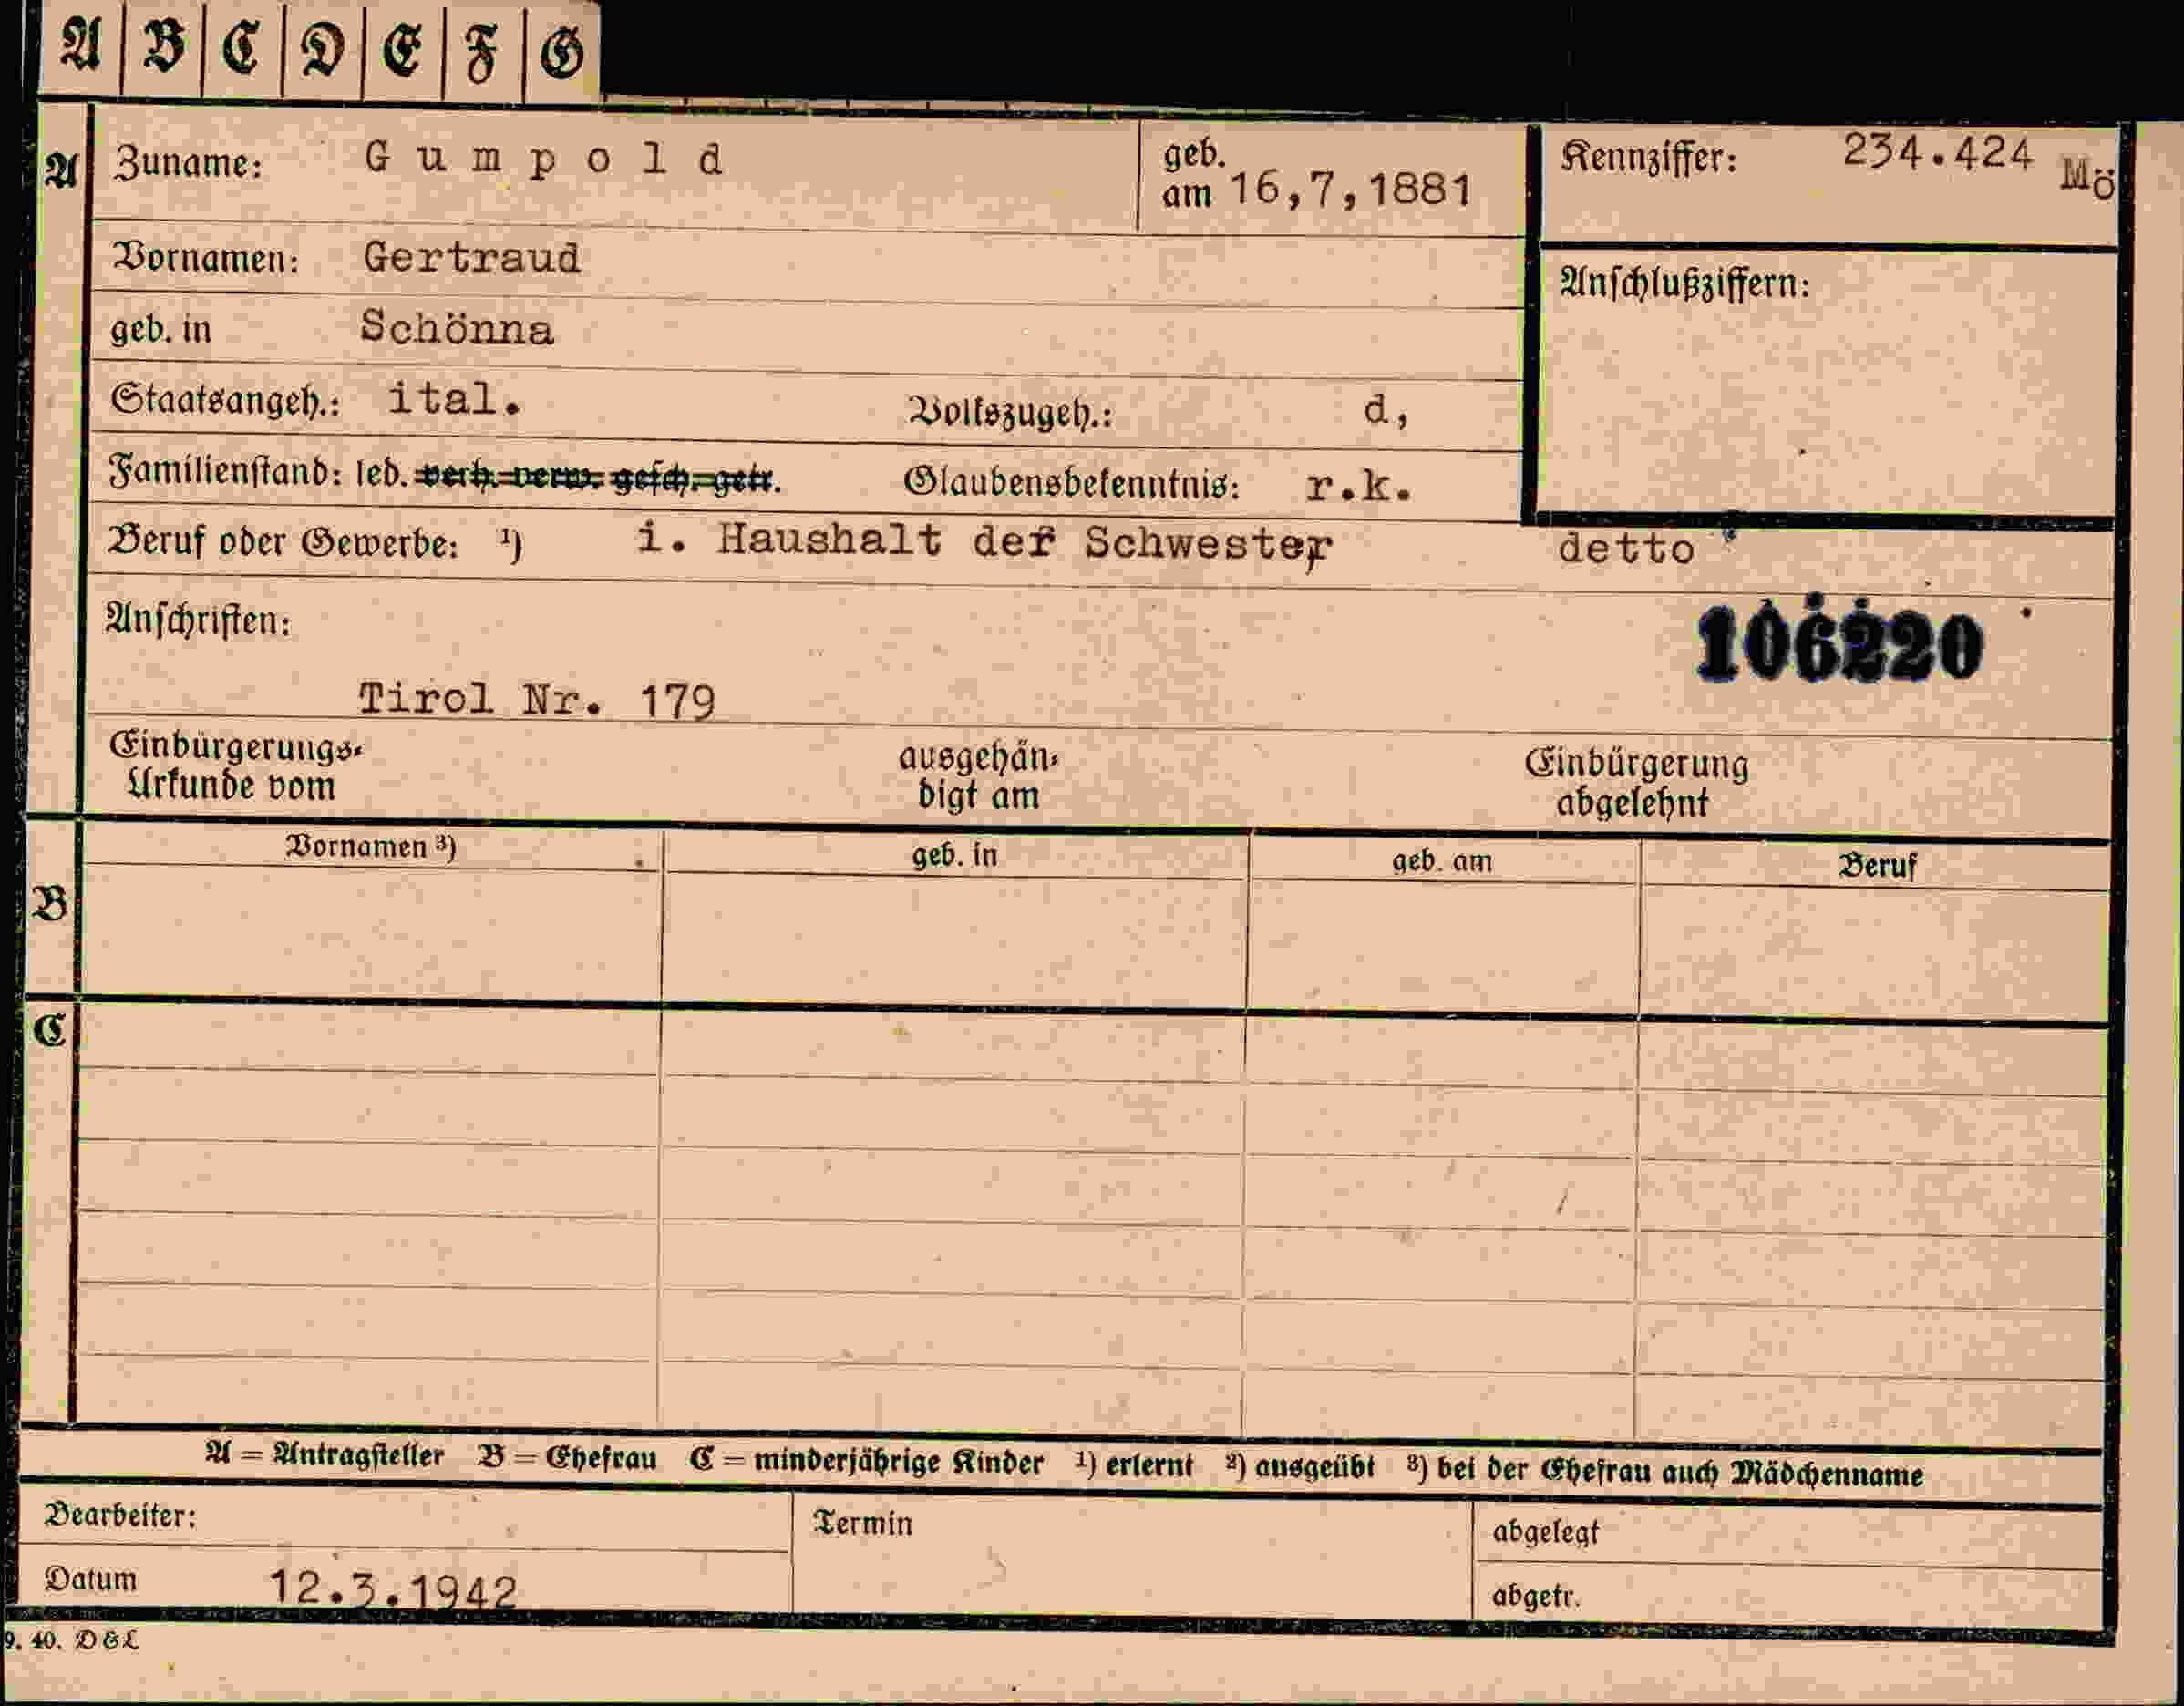 A B C D E F G
A Zuname: Gumpold geb. am 16,7,1881 Kennziffer: 234.424 Mö
Vornamen: Gertraud
Anschlußziffern:
geb. in Schönna
Staatsangeh.: ital. Volkszugeh.: d,
Familienstand: led. verh. verw. gesch. getr. Glaubensbekenntnis: r.k.
Beruf oder Gewerbe: ¹) i. Haushalt der Schwester detto
Anschriften:
106220
Tirol Nr. 179
Einbürgerungs-
Urkunde vom
ausgehän-
digt am
Einbürgerung
abgelehnt
Vornamen ³) geb. in geb. am Beruf
B
C
A = Antragsteller B = Ehefrau C = minderjährige Kinder ¹) erlernt ²) ausgeübt ³) bei der Ehefrau auch Mädchenname
Bearbeiter: Termin abgelegt
Datum 12.3.1942 abgetr.
9. 40. D & L